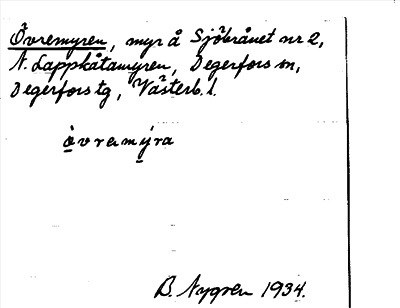 Övremyren, myr å Sjöbrånet nr 2,
N. Lappkåtamyren, Degerfors sn,
Degerfors tg, Västerb. l.
òvremýra
B. Nygren 1934.